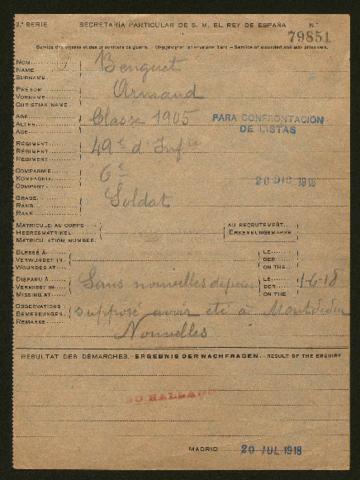 2.ª SERIE SECRETARÍA PARTICULAR DE S. M. EL REY DE ESPAÑA N.º
79851
NOM
NAME
SURNAME
Benquet
PRÉNOM
VORNAME
CHRISTIAN NAME
Armand
AGE
ALTER
AGE
Classe 1905
PARA CONFRONTACIÓN
DE LISTAS
RÉGIMENT
REGIMENT
REGIMENT
49e d'Infie
COMPAGNIE
KOMPAGNIE
COMPANY
6e
20 1918
GRADE
RANG
RANK
Soldat
MATRICULE AU CORPS
HEERESMATRIKEL
MATRICULATION NUMBER
AU RECRUTEMENT
BLESSÉ À
VERWUNDET IN
WOUNDED AT
LE
DER
ON THE
DISPARU À
VERMISST IN
MISSING AT
Sans nouvelles depuis
LE
DER
ON THE
1-6-18
OBSERVATIONS
BEMERKUNGEN
REMARKS
supposé avoir été à
Nouvelles
RESULTAT DES DÉMARCHES. ERGEBNIS DER NACHFRAGEN. RESULT OF THE ENQUIRY
NO HALLADO
MADRID 20 JUL 1918